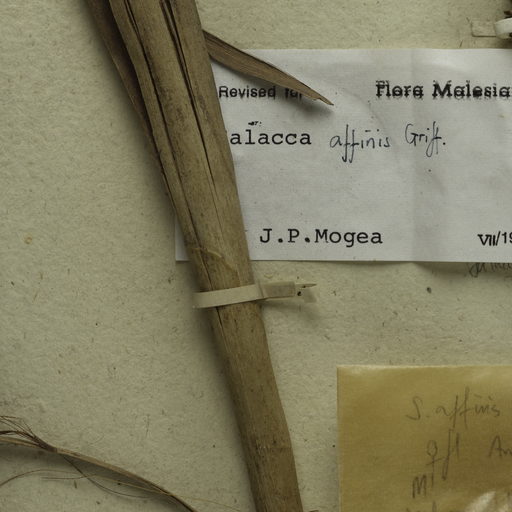 Revised for Flora Malesia
alacca affinis Griff.
J.P.Mogea VII/19
S. affinis
♀fl An
M